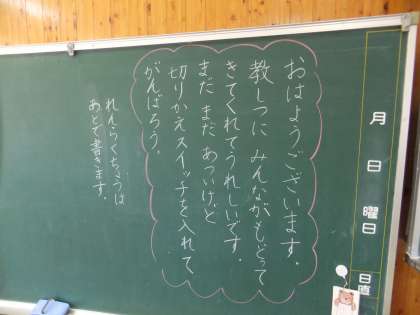 月
日
曜日
日直
おはようございます。
教しつに みんながもどって
きてくれてうれしいです。
まだ まだ あついけど
切りかえスイッチを入れて
がんばろう。
れんらくちょうは
あとで書きます。